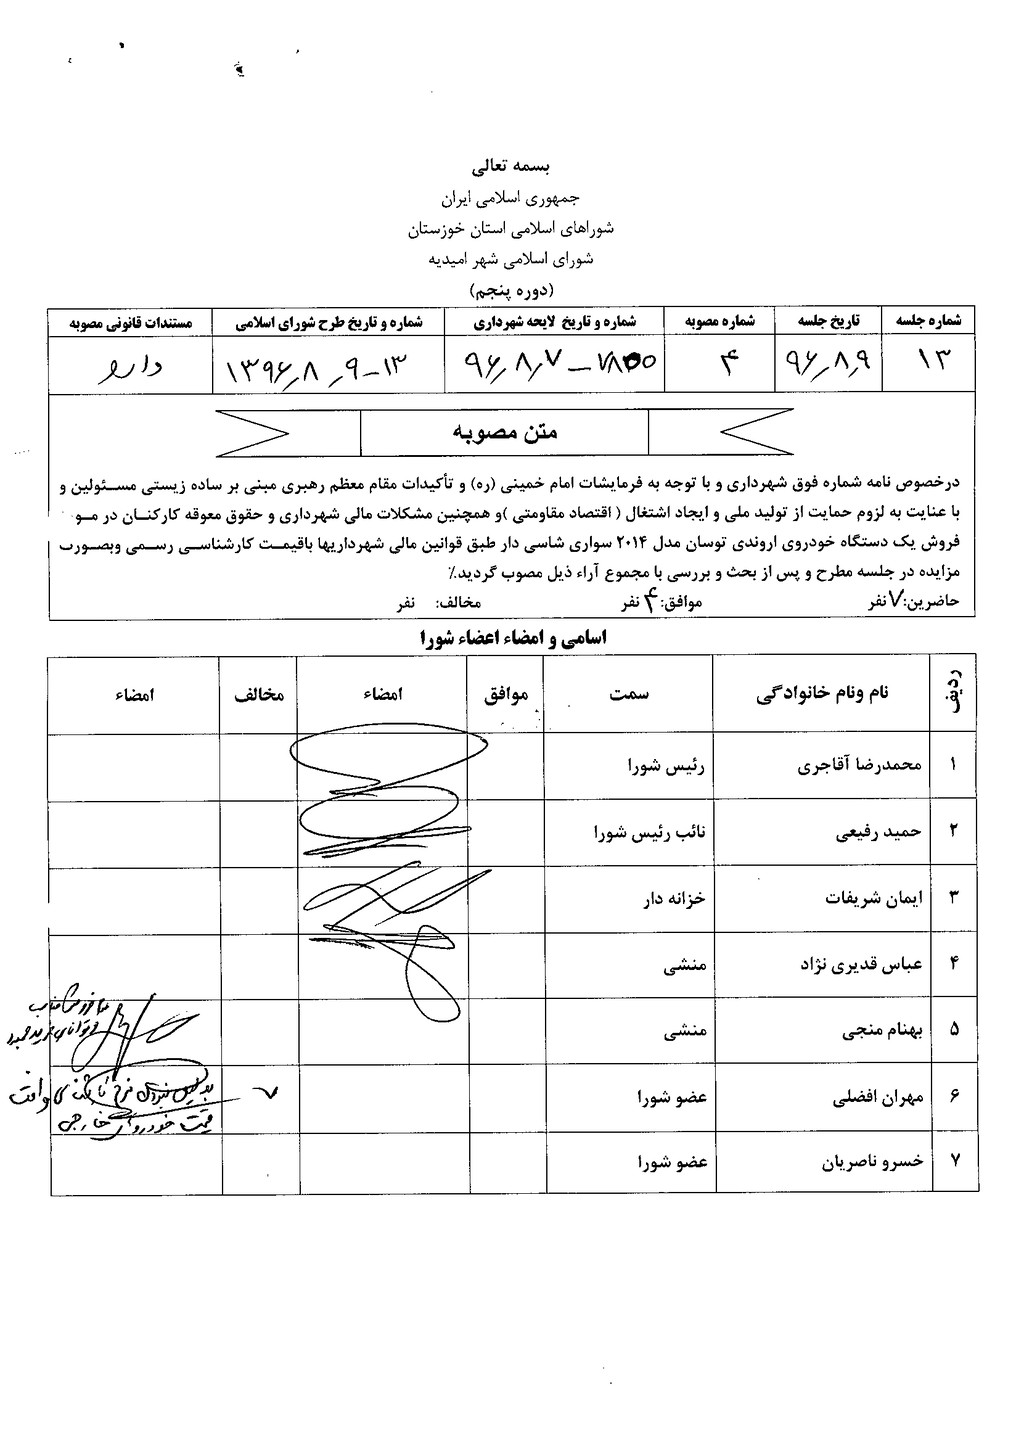 بسمه تعالی
جمهوری اسلامی ایران
شوراهای اسلامی استان خوزستان
شورای اسلامی شهر امیدیه
(دوره پنجم)
شماره جلسه تاریخ جلسه شماره مصوبه شماره و تاریخ لایحه شهرداری شماره و تاریخ طرح شورای اسلامی مستندات قانونی مصوبه
۱۳ ۹۶٫۸٫۹ ۴ ۷۸۵۵ – ۹۶٫۸٫۷ ۱۳ – ۱۳۹۶٫۸٫۹ دارد
متن مصوبه
درخصوص نامه شماره فوق شهرداری و با توجه به فرمایشات امام خمینی (ره) و تأکیدات مقام معظم رهبری مبنی بر ساده زیستی مسئولین و
با عنایت به لزوم حمایت از تولید ملی و ایجاد اشتغال ( اقتصاد مقاومتی )و همچنین مشکلات مالی شهرداری و حقوق معوقه کارکنان در مو
فروش یک دستگاه خودروی اروندی توسان مدل ۲۰۱۴ سواری شاسی دار طبق قوانین مالی شهرداریها باقیمت کارشناسی رسمی وبصورت
مزایده در جلسه مطرح و پس از بحث و بررسی با مجموع آراء ذیل مصوب گردید.٪
حاضرین:۷ نفر موافق:۴ نفر مخالف: نفر
اسامی و امضاء اعضاء شورا
ردیف نام ونام خانوادگی سمت موافق امضاء مخالف امضاء
۱ محمدرضا آقاجری رئیس شورا
۲ حمید رفیعی نائب رئیس شورا
۳ ایمان شریفات خزانه دار
۴ عباس قدیری نژاد منشی
۵ بهنام منجی منشی
۶ مهران افضلی عضو شورا
قیمت خودروهای خارجی
۷ خسرو ناصریان عضو شورا